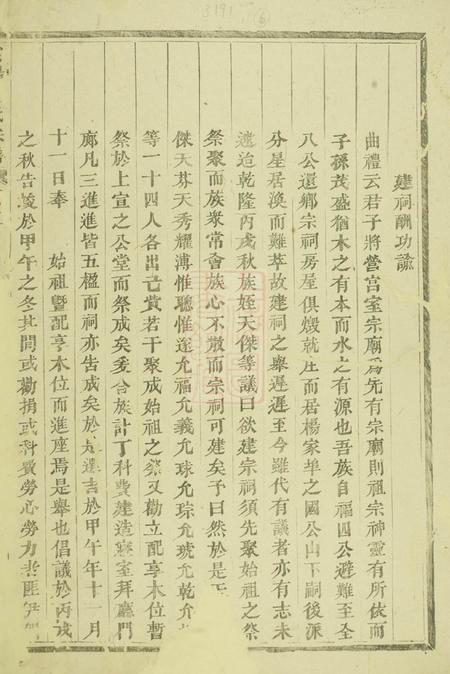 3191
⑥
建祠酬功諭
曲禮云君子將營宮室宗廟爲先有宗廟則祖宗神靈有所依而
子孫茂盛猶木之有本而水之有源也吾族自福四公避難至全
八公還鄉宗祠房屋俱燬就庄而居楊家埠之國公山下嗣後派
分星居渙而難萃故建祠之舉遲遲至今雖代有議者亦有志未
逮迨乾隆丙戌秋族姪天傑等議曰欲建宗祠須先聚始祖之祭
祭聚而族衆常會族心不散而宗祠可建矣予曰然於是
傑天芬天秀耀溥惟聰惟遂允福允義允球允琮允琥允乾介
等一十四人各出貲若干聚成始祖之祭又勸立配享木位暫
祭於上宣之公堂而祭成矣爰合族計丁科費建造寢室拜廳門
廊凡三進進皆五楹而祠亦告成矣於是選吉於甲午年十一月
十一日奉 始祖暨配享木位而進座焉是舉也倡議於丙戌
之秋告竣於甲午之冬其間或勸捐或科費勞心勞力者匪